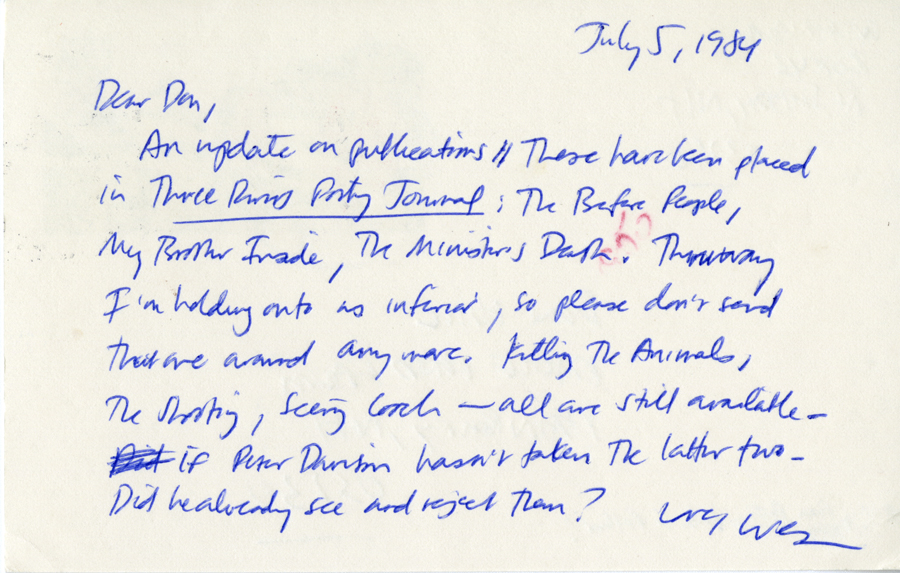 July 5, 1984
Dear Don,
An update on publications // These have been placed
in Three Rivers Poetry Journal: The Before People,
My Brother Inside, The Minister's Death. Thruway
I'm holding onto as inferior, so please don't send
that one around anymore. Killing The Animals,
The Shooting, Seeing Cooch — all are still available —
if Peter Davison hasn't taken The latter two —
Did he already see and reject them? Love, Wes